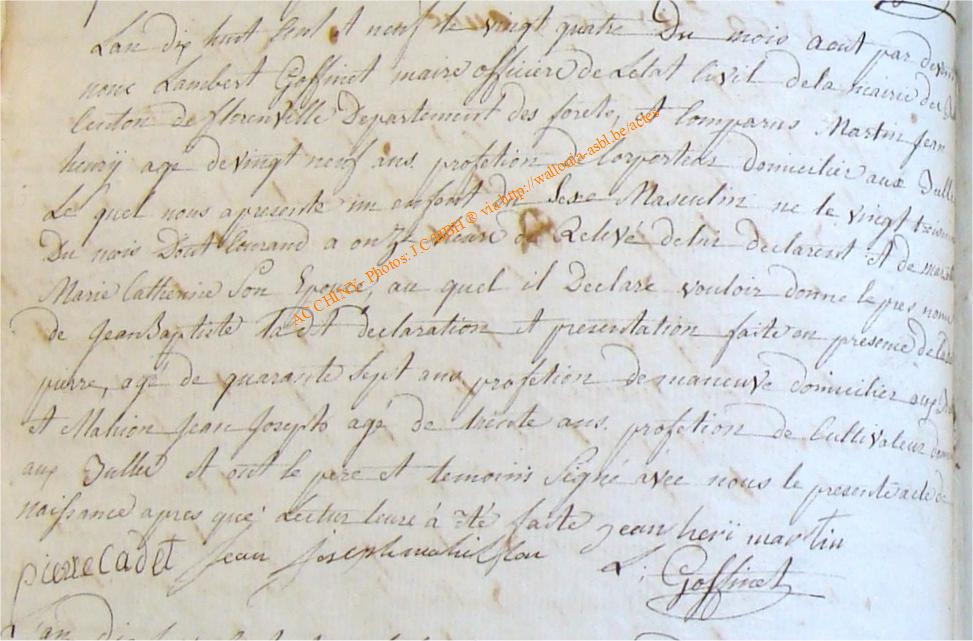 Lan dix huit Cent et neuf le vingt quatre Du mois aout par devant
nous Lambert Goffinet maire officiere de Letat Civil de la mairie des
Centon de florenville Departement des forets, et Comparus Martin jean
henry age de vingt neuf ans. profetion de Corporteur domicilier aux Bulles
Le quel nous apresente un enfant du Sexe Masculin ne le vingt
Du mois Dout Courand a onze heure de Relevé delui declarent et de
Marie Catherine Son Epouse, au quel il Declare vouloir donne le pres nom
de Jean Baptiste la dit declaration et presentation faite en presence de
pierre, agé de quarante Sept ans profetion de maneuve domicilier aux
et Mahion Jean Joseph agé de trente ans. profetion de Cultivateur
aux Bulles et ont le pere et temoins Signé avec nous le presente acte de
naissance apres que Lectur leure à ète faite jean heri martin
pierre Cadet jean joseph
L: Goffinet
L'an
AC CHINY Photos: J.C ABBH ® via http://wallonia-asbl.be/actes